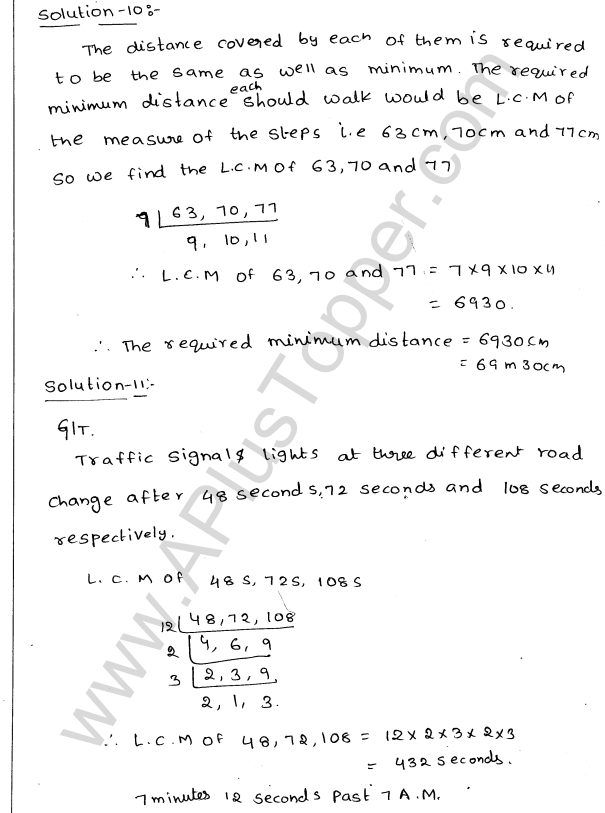 Solution-10:-
The distance covered by each of them is required
to be the same as well as minimum. The required
minimum distance each should walk would be L.C.M of
the measure of the steps i.e 63cm, 70cm and 77cm
So we find the L.C.M of 63, 70 and 77
7 | 63, 70, 77
9, 10, 11
∴ L.C.M of 63, 70 and 77 = 7×9×10×11
= 6930.
∴ The required minimum distance = 6930cm
= 69m 30cm
Solution-11:-
GIT.
Traffic signals lights at three different road
change after 48 seconds, 72 seconds and 108 seconds
respectively.
L.C.M of 48s, 72s, 108s
12 | 48, 72, 108
2 | 4, 6, 9
3 | 2, 3, 9
2, 1, 3.
∴ L.C.M of 48, 72, 108 = 12×2×3×2×3
= 432 seconds.
7 minutes 12 seconds Past 7 A.M.
www.APlusTopper.com